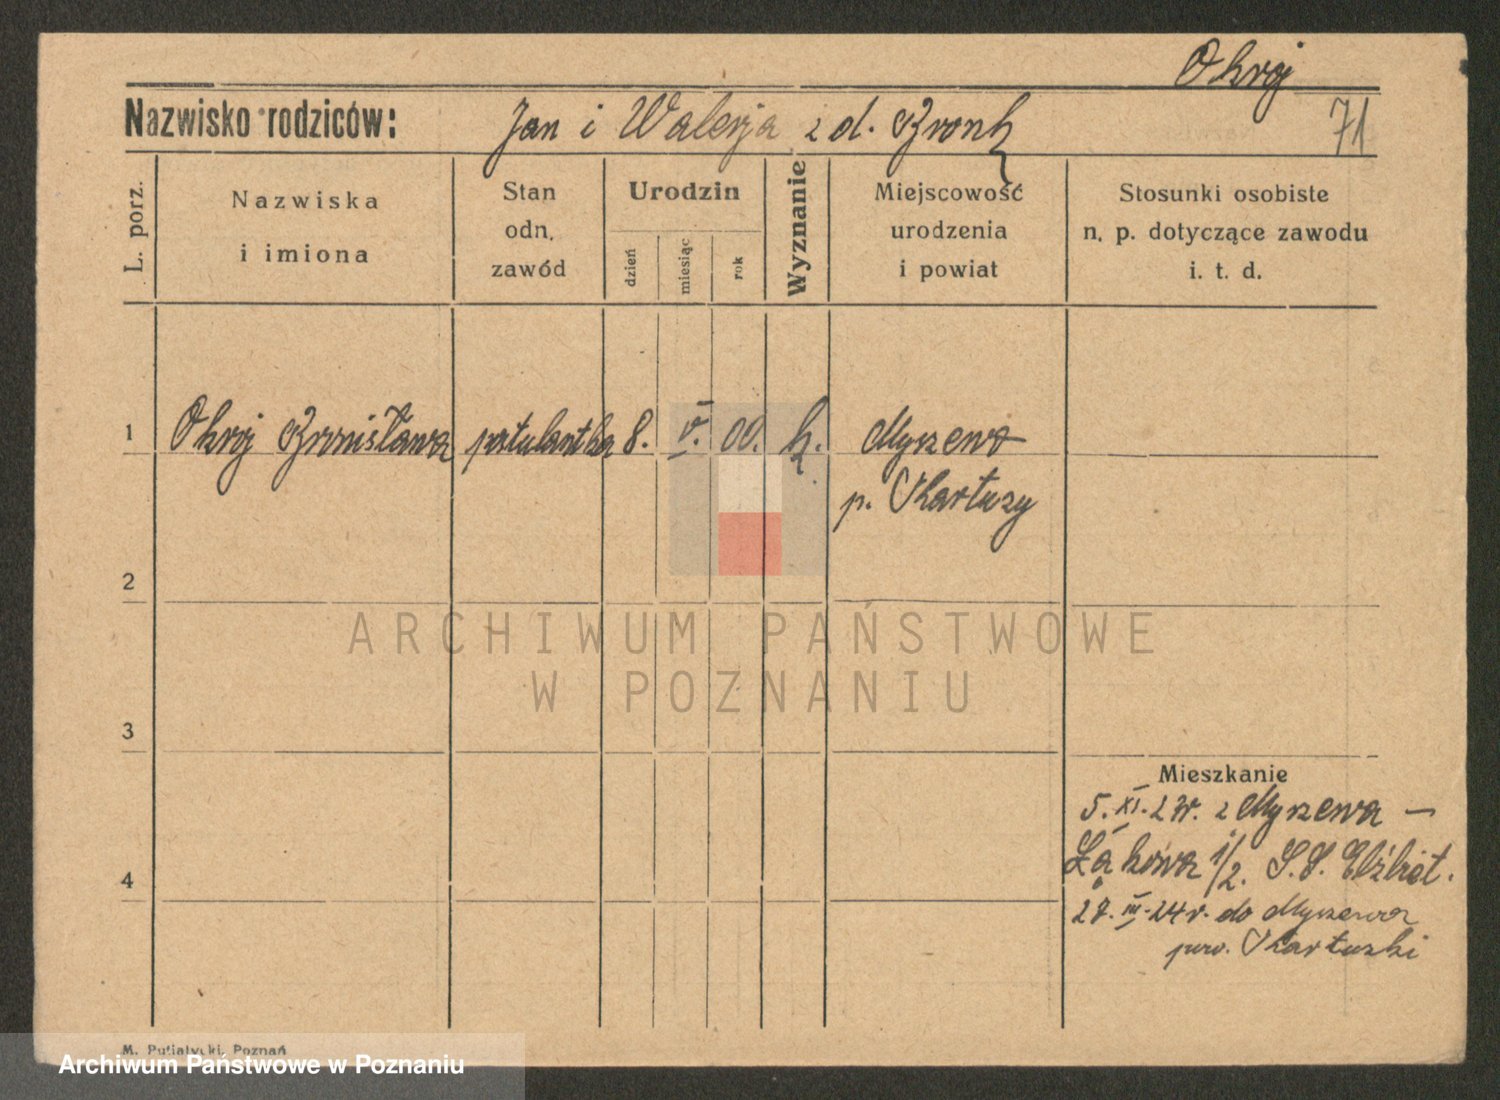 Okroj
Nazwisko rodziców: Jan i Walerja z d. Bronk 71
L. porz.
Nazwiska
i imiona
Stan
odn.
zawód
Urodzin
dzień
miesiąc
rok
Wyznanie
Miejscowość
urodzenia
i powiat
Stosunki osobiste
n. p. dotyczące zawodu
i. t. d.
1 Okroj Bronisława postulantka 8. V. 00. k. Myszewo
p. Kartuzy
2
3
4
Mieszkanie
5. XI. 23r. z Myszewa —
Łąkowa 1/2. S.S. Elżbiet.
27. III. 24 r. do Myszewa
pow. Kartuski
M. Putiatycki, Poznań
ARCHIWUM PAŃSTWOWE
W POZNANIU
Archiwum Państwowe w Poznaniu